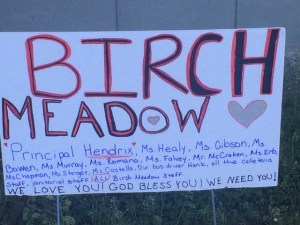 BIRCH
MEADOW
Principal Hendrix, Ms. Healy, Ms. Gibson, Ms
Bowen, Ms. Murray, Ms. Romano, Ms. Falvey, Mr. McCraken, Ms Erb,
Ms Chapman, Ms. Stenger, Ms Costello, Our bus driver Hank, all the cafeteria
staff, janitorial staff. ALL Birch Meadow Staff
WE LOVE YOU! GOD BLESS YOU! WE NEED YOU!